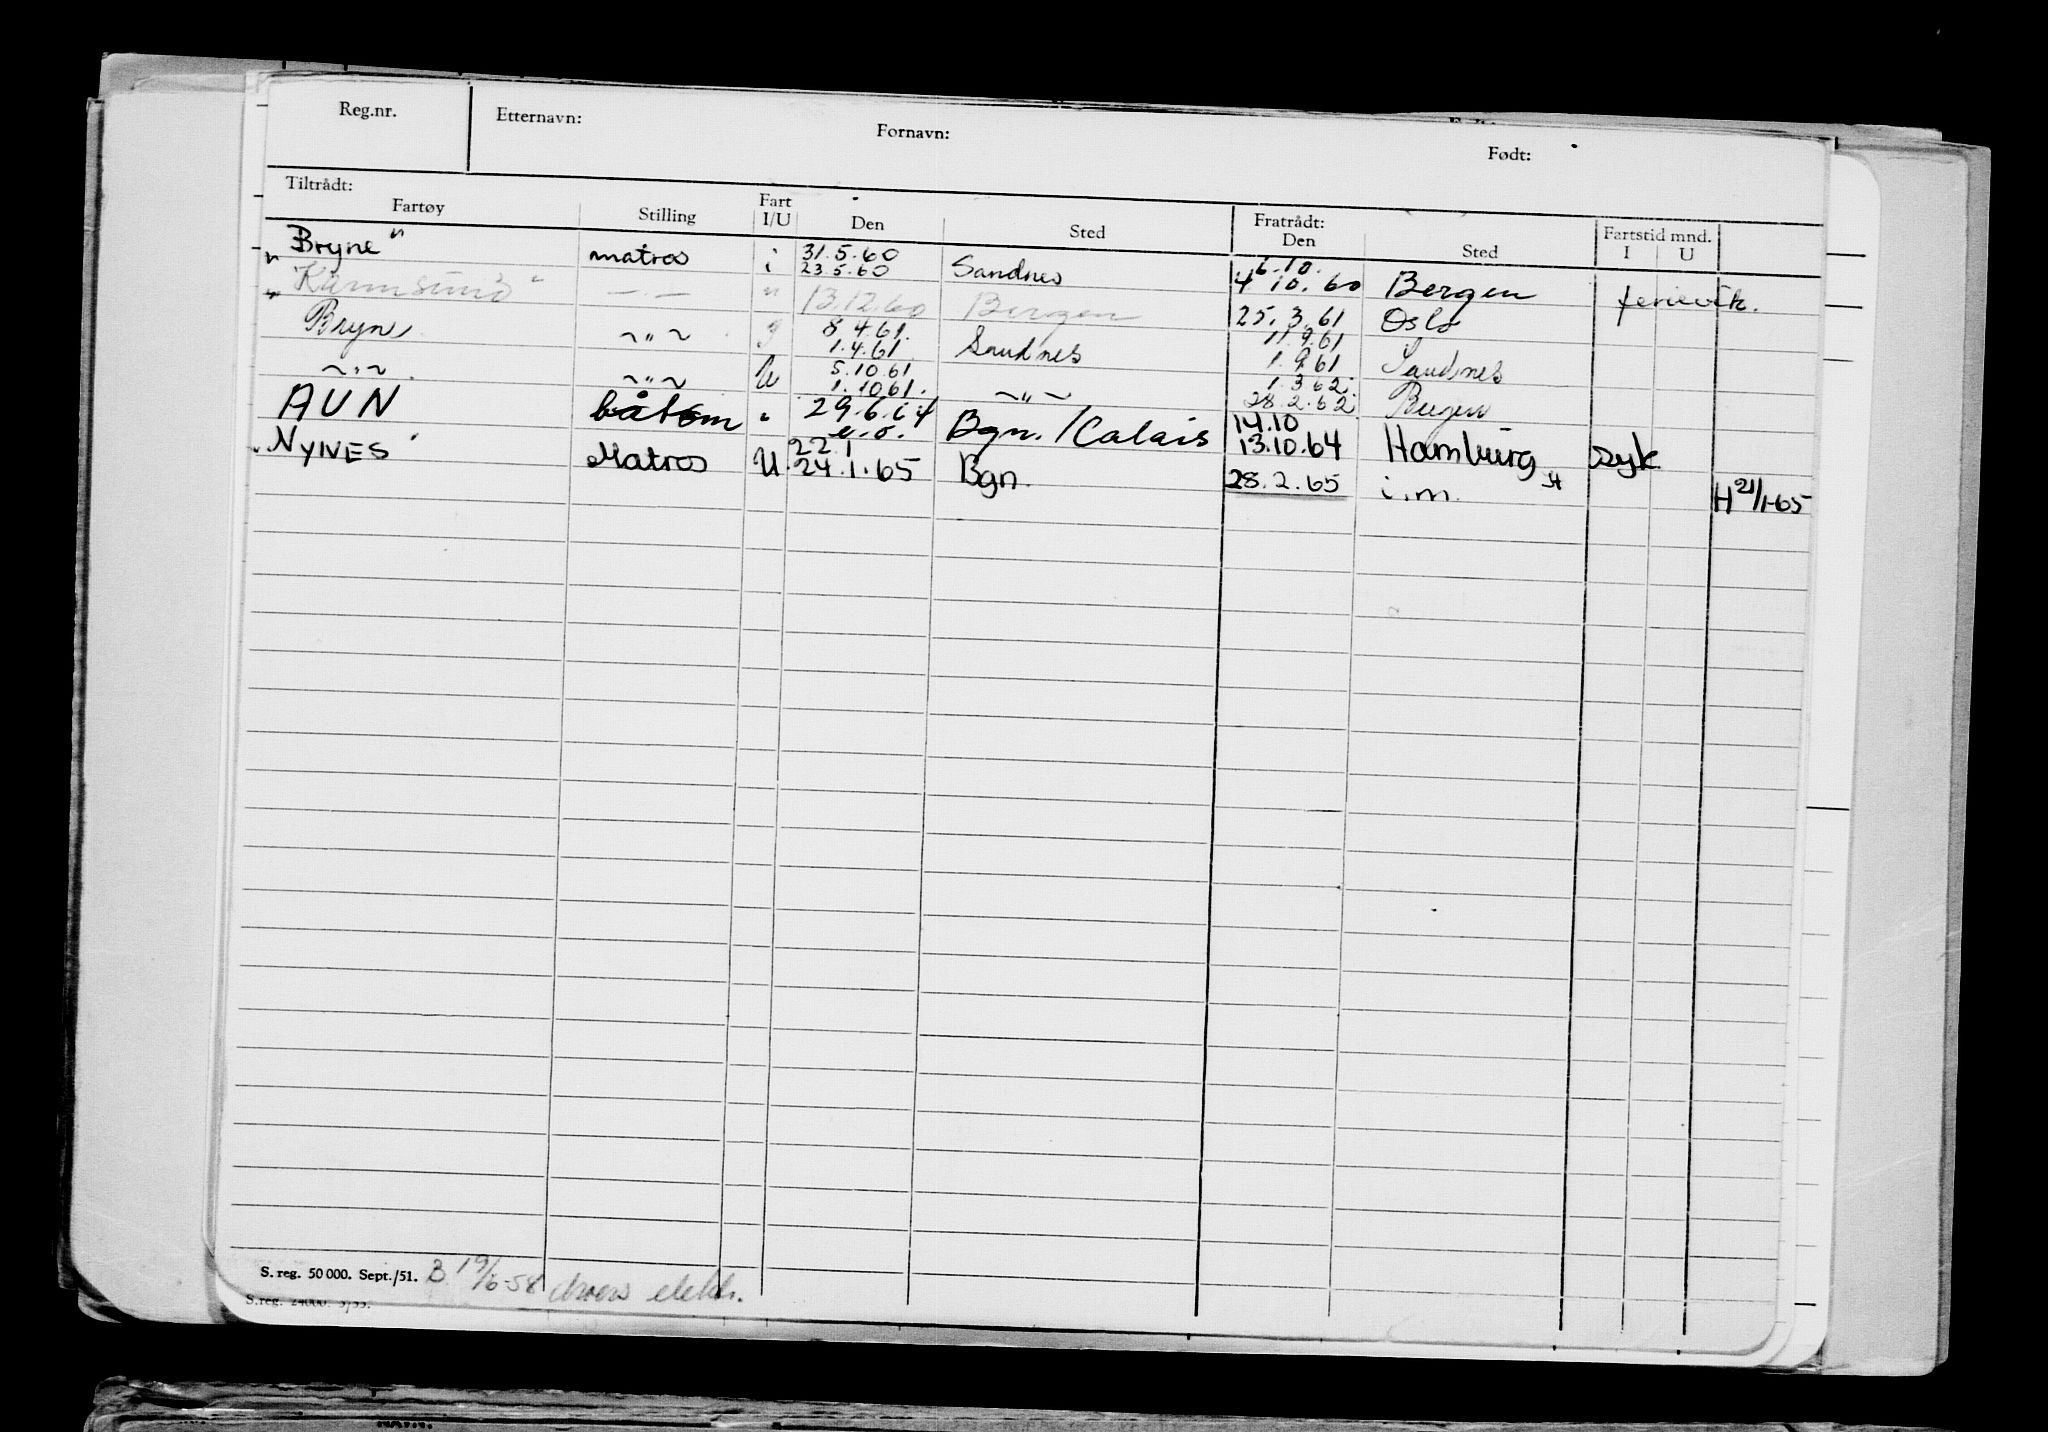 Reg.nr. Etternavn: Fornavn: Født:
Tiltrådt: Fratrådt:
Fartøy Stilling Fart I/U Den Sted Den Sted Fartstid mnd. I U
"Bryne" matros i 31.5.60 23.5.60 Sandnes 6.10. 4.10.60 Bergen ferievik.
"Karmsund" —.— " 13.12.60 Bergen 25.3.61 Oslo
Bryne ~"~ 8.4.61. 1.4.61. Sandnes 11.9.61 1.9.61 Sandnes
~"~ ~"~ U 5.10.61 1.10.61. ~"~ 1.3.62. 28.2.62. Bergen
AUN båtsm " 29.6.64 e.o. Bgn./Calais 14.10 13.10.64 Hamburg syk
Matros U 22.1 24.1.65 Bgn. 28.2.65 i.m. H 21/1-65
S. reg. 50 000. Sept./51. B 19/6-58
S.reg. 24000. 3/55.